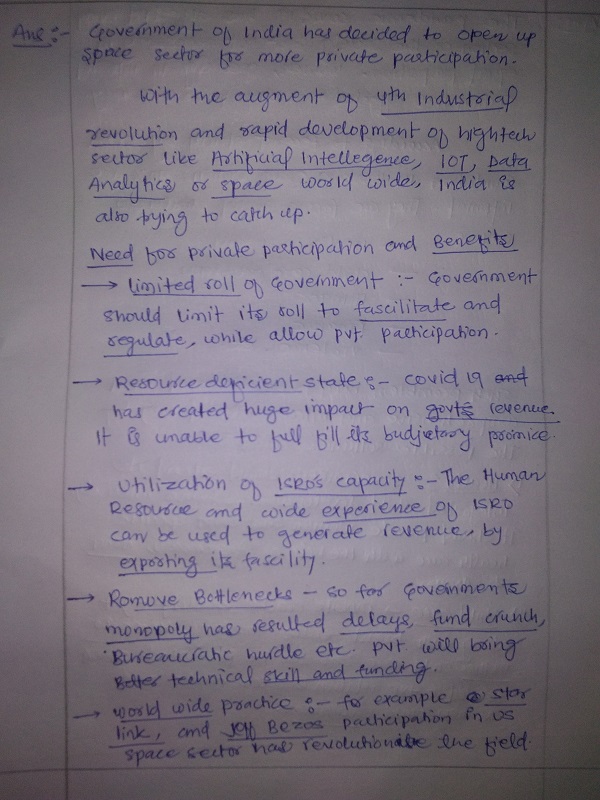 Ans :- Government of India has decided to open up
space sector for more private participation.
With the augment of 4th Industrial
revolution and rapid development of hightech
sector like Artificial Intellegence, IOT, Data
Analytics or space world wide, India is
also trying to catch up.
Need for private participation and Benefits
→ Limited roll of Government :- Government
should limit its roll to fascilitate and
regulate, while allow pvt. participation.
→ Resource deficient state :- covid 19 and
has created huge impact on govts revenue.
It is unable to full fill its budjetary promice.
→ Utilization of ISRO's capacity :- The Human
Resource and wide experience of ISRO
can be used to generate revenue, by
exporting its fascility.
→ Remove Bottlenecks - so far Governments
monopoly has resulted delays, fund crunch,
Bureaucratic hurdle etc. pvt will bring
Better technical skill and funding.
→ world wide practice :- for example star
link, and Jeff Bezos participation in US
space sector has revolutionalise the field.